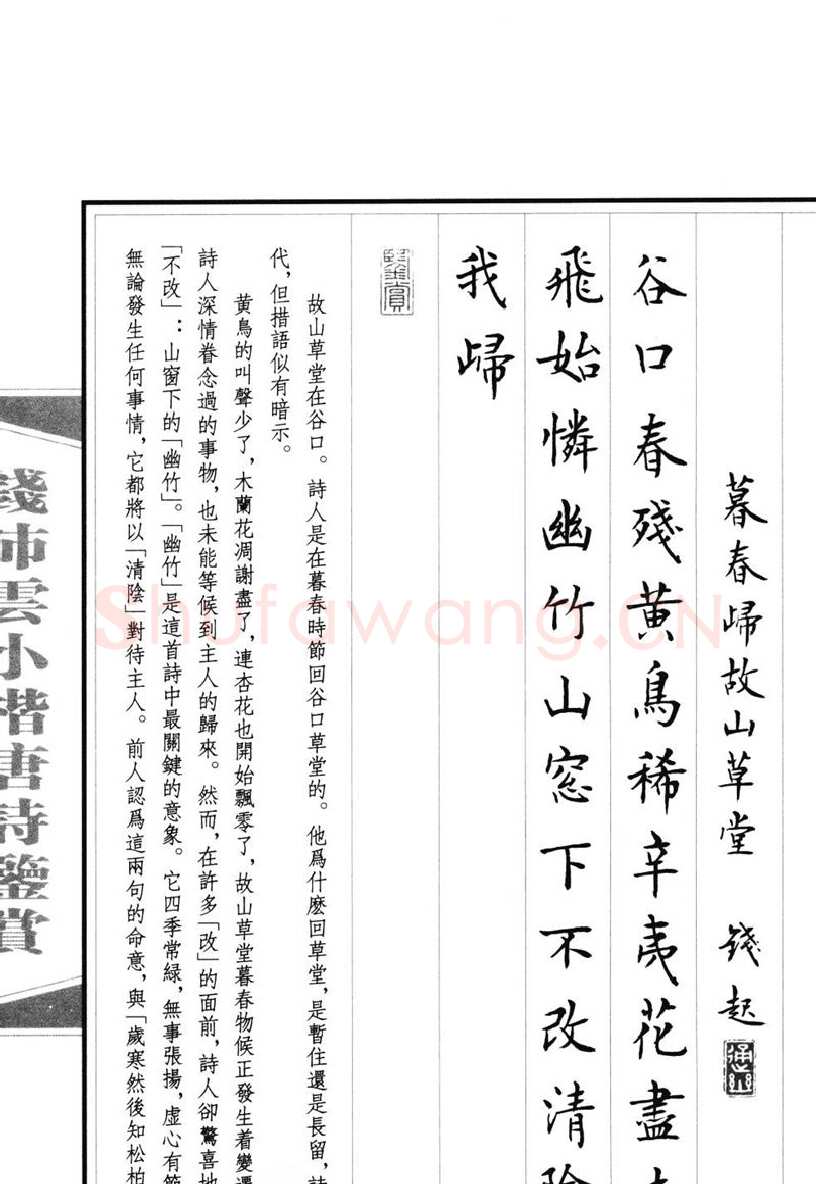 暮春歸故山草堂 錢起
谷口春殘黃鳥稀辛夷花盡
飛始憐幽竹山窓下不改清陰
我歸
鑒賞
故山草堂在谷口。詩人是在暮春時節回谷口草堂的。他爲什麽回草堂，是暫住還是長留，詩
代，但措語似有暗示。
黄鳥的叫聲少了，木蘭花凋謝盡了，連杏花也開始飄零了，故山草堂暮春物候正發生着變遷
詩人深情眷念過的事物，也未能等候到主人的歸來。然而，在許多「改」的面前，詩人卻驚喜地
「不改」：山窗下的「幽竹」。「幽竹」是這首詩中最關鍵的意象。它四季常緑，無事張揚，虛心有節
無論發生任何事情，它都將以「清陰」對待主人。前人認爲這兩句的命意，與「歲寒然後知松柏
錢沛雲小楷唐詩鑒賞
Shufawang.CN